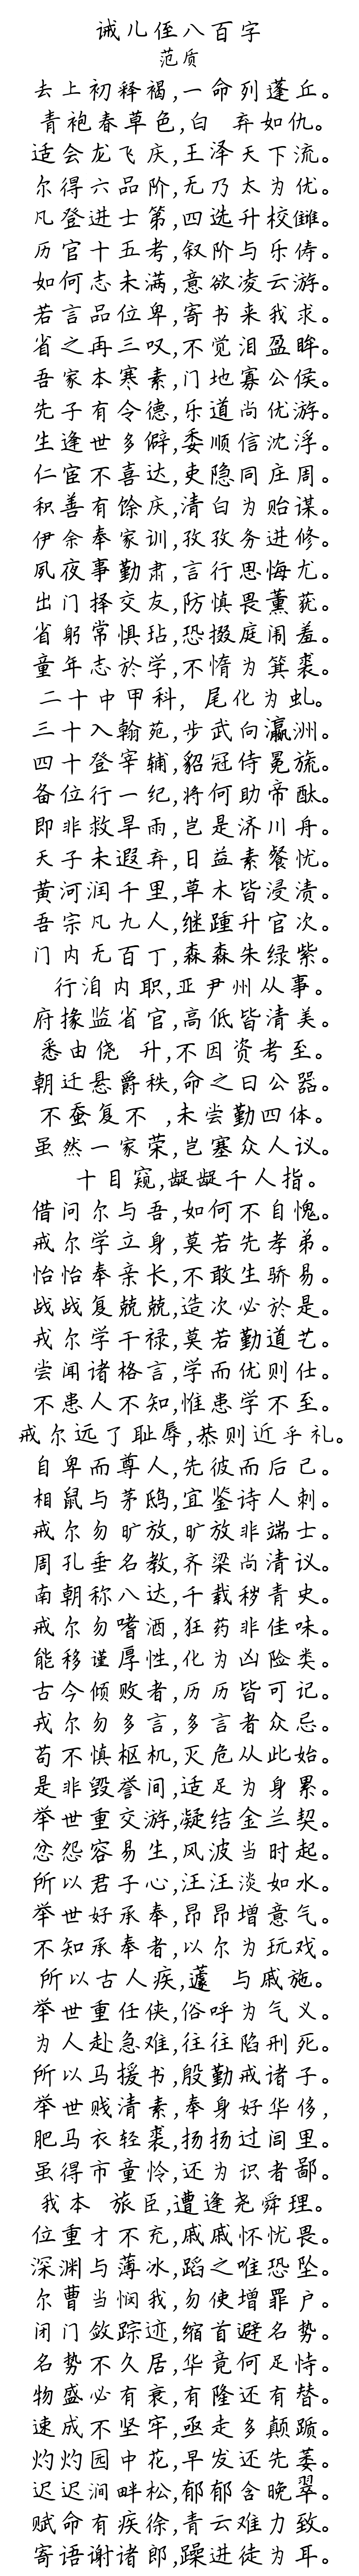 诫儿侄八百字
范质
去上初释褐,一命列蓬丘。
青袍春草色,白 弃如仇。
适会龙飞庆,王泽天下流。
尔得六品阶,无乃太为优。
凡登进士第,四选升校雠。
历官十五考,叙阶与乐俦。
如何志未满,意欲凌云游。
若言品位卑,寄书来我求。
省之再三叹,不觉泪盈眸。
吾家本寒素,门地寡公侯。
先子有令德,乐道尚优游。
生逢世多僻,委顺信沈浮。
仁宦不喜达,吏隐同庄周。
积善有馀庆,清白为贻谋。
伊余奉家训,孜孜务进修。
夙夜事勤肃,言行思悔尤。
出门择交友,防慎畏薰莸。
省躬常惧玷,恐掇庭闱羞。
童年志於学,不惰为箕裘。
二十中甲科, 尾化为虬。
三十入翰苑,步武向瀛洲。
四十登宰辅,貂冠侍冕旒。
备位行一纪,将何助帝猷。
即非救旱雨,岂是济川舟。
天子未遐弃,日益素餐忧。
黄河润千里,草木皆浸渍。
吾宗凡九人,继踵升官次。
门内无百丁,森森朱绿紫。
行洎内职,亚尹州从事。
府掾监省官,高低皆清美。
悉由侥 升,不因资考至。
朝迁悬爵秩,命之曰公器。
不蚕复不 ,未尝勤四体。
虽然一家荣,岂塞众人议。
十目窥,龊龊千人指。
借问尔与吾,如何不自愧。
戒尔学立身,莫若先孝弟。
怡怡奉亲长,不敢生骄易。
战战复兢兢,造次必於是。
戒尔学干禄,莫若勤道艺。
尝闻诸格言,学而优则仕。
不患人不知,惟患学不至。
戒尔远了耻辱,恭则近乎礼。
自卑而尊人,先彼而后己。
相鼠与茅鸱,宜鉴诗人刺。
戒尔勿旷放,旷放非端士。
周孔垂名教,齐梁尚清议。
南朝称八达,千载秽青史。
戒尔勿嗜酒,狂药非佳味。
能移谨厚性,化为凶险类。
古今倾败者,历历皆可记。
戒尔勿多言,多言者众忌。
苟不慎枢机,灾危从此始。
是非毁誉间,适足为身累。
举世重交游,凝结金兰契。
忿怨容易生,风波当时起。
所以君子心,汪汪淡如水。
举世好承奉,昂昂增意气。
不知承奉者,以尔为玩戏。
所以古人疾,蘧 与戚施。
举世重任侠,俗呼为气义。
为人赴急难,往往陷刑死。
所以马援书,殷勤戒诸子。
举世贱清素,奉身好华侈,
肥马衣轻裘,扬扬过闾里。
虽得市童怜,还为识者鄙。
我本 旅臣,遭逢尧舜理。
位重才不充,戚戚怀忧畏。
深渊与薄冰,蹈之唯恐坠。
尔曹当悯我,勿使增罪户。
闭门敛踪迹,缩首避名势。
名势不久居,华竟何足恃。
物盛必有衰,有隆还有替。
速成不坚牢,亟走多颠踬。
灼灼园中花,早发还先萎。
迟迟涧畔松,郁郁含晚翠。
赋命有疾徐,青云难力致。
寄语谢诸郎,躁进徒为耳。